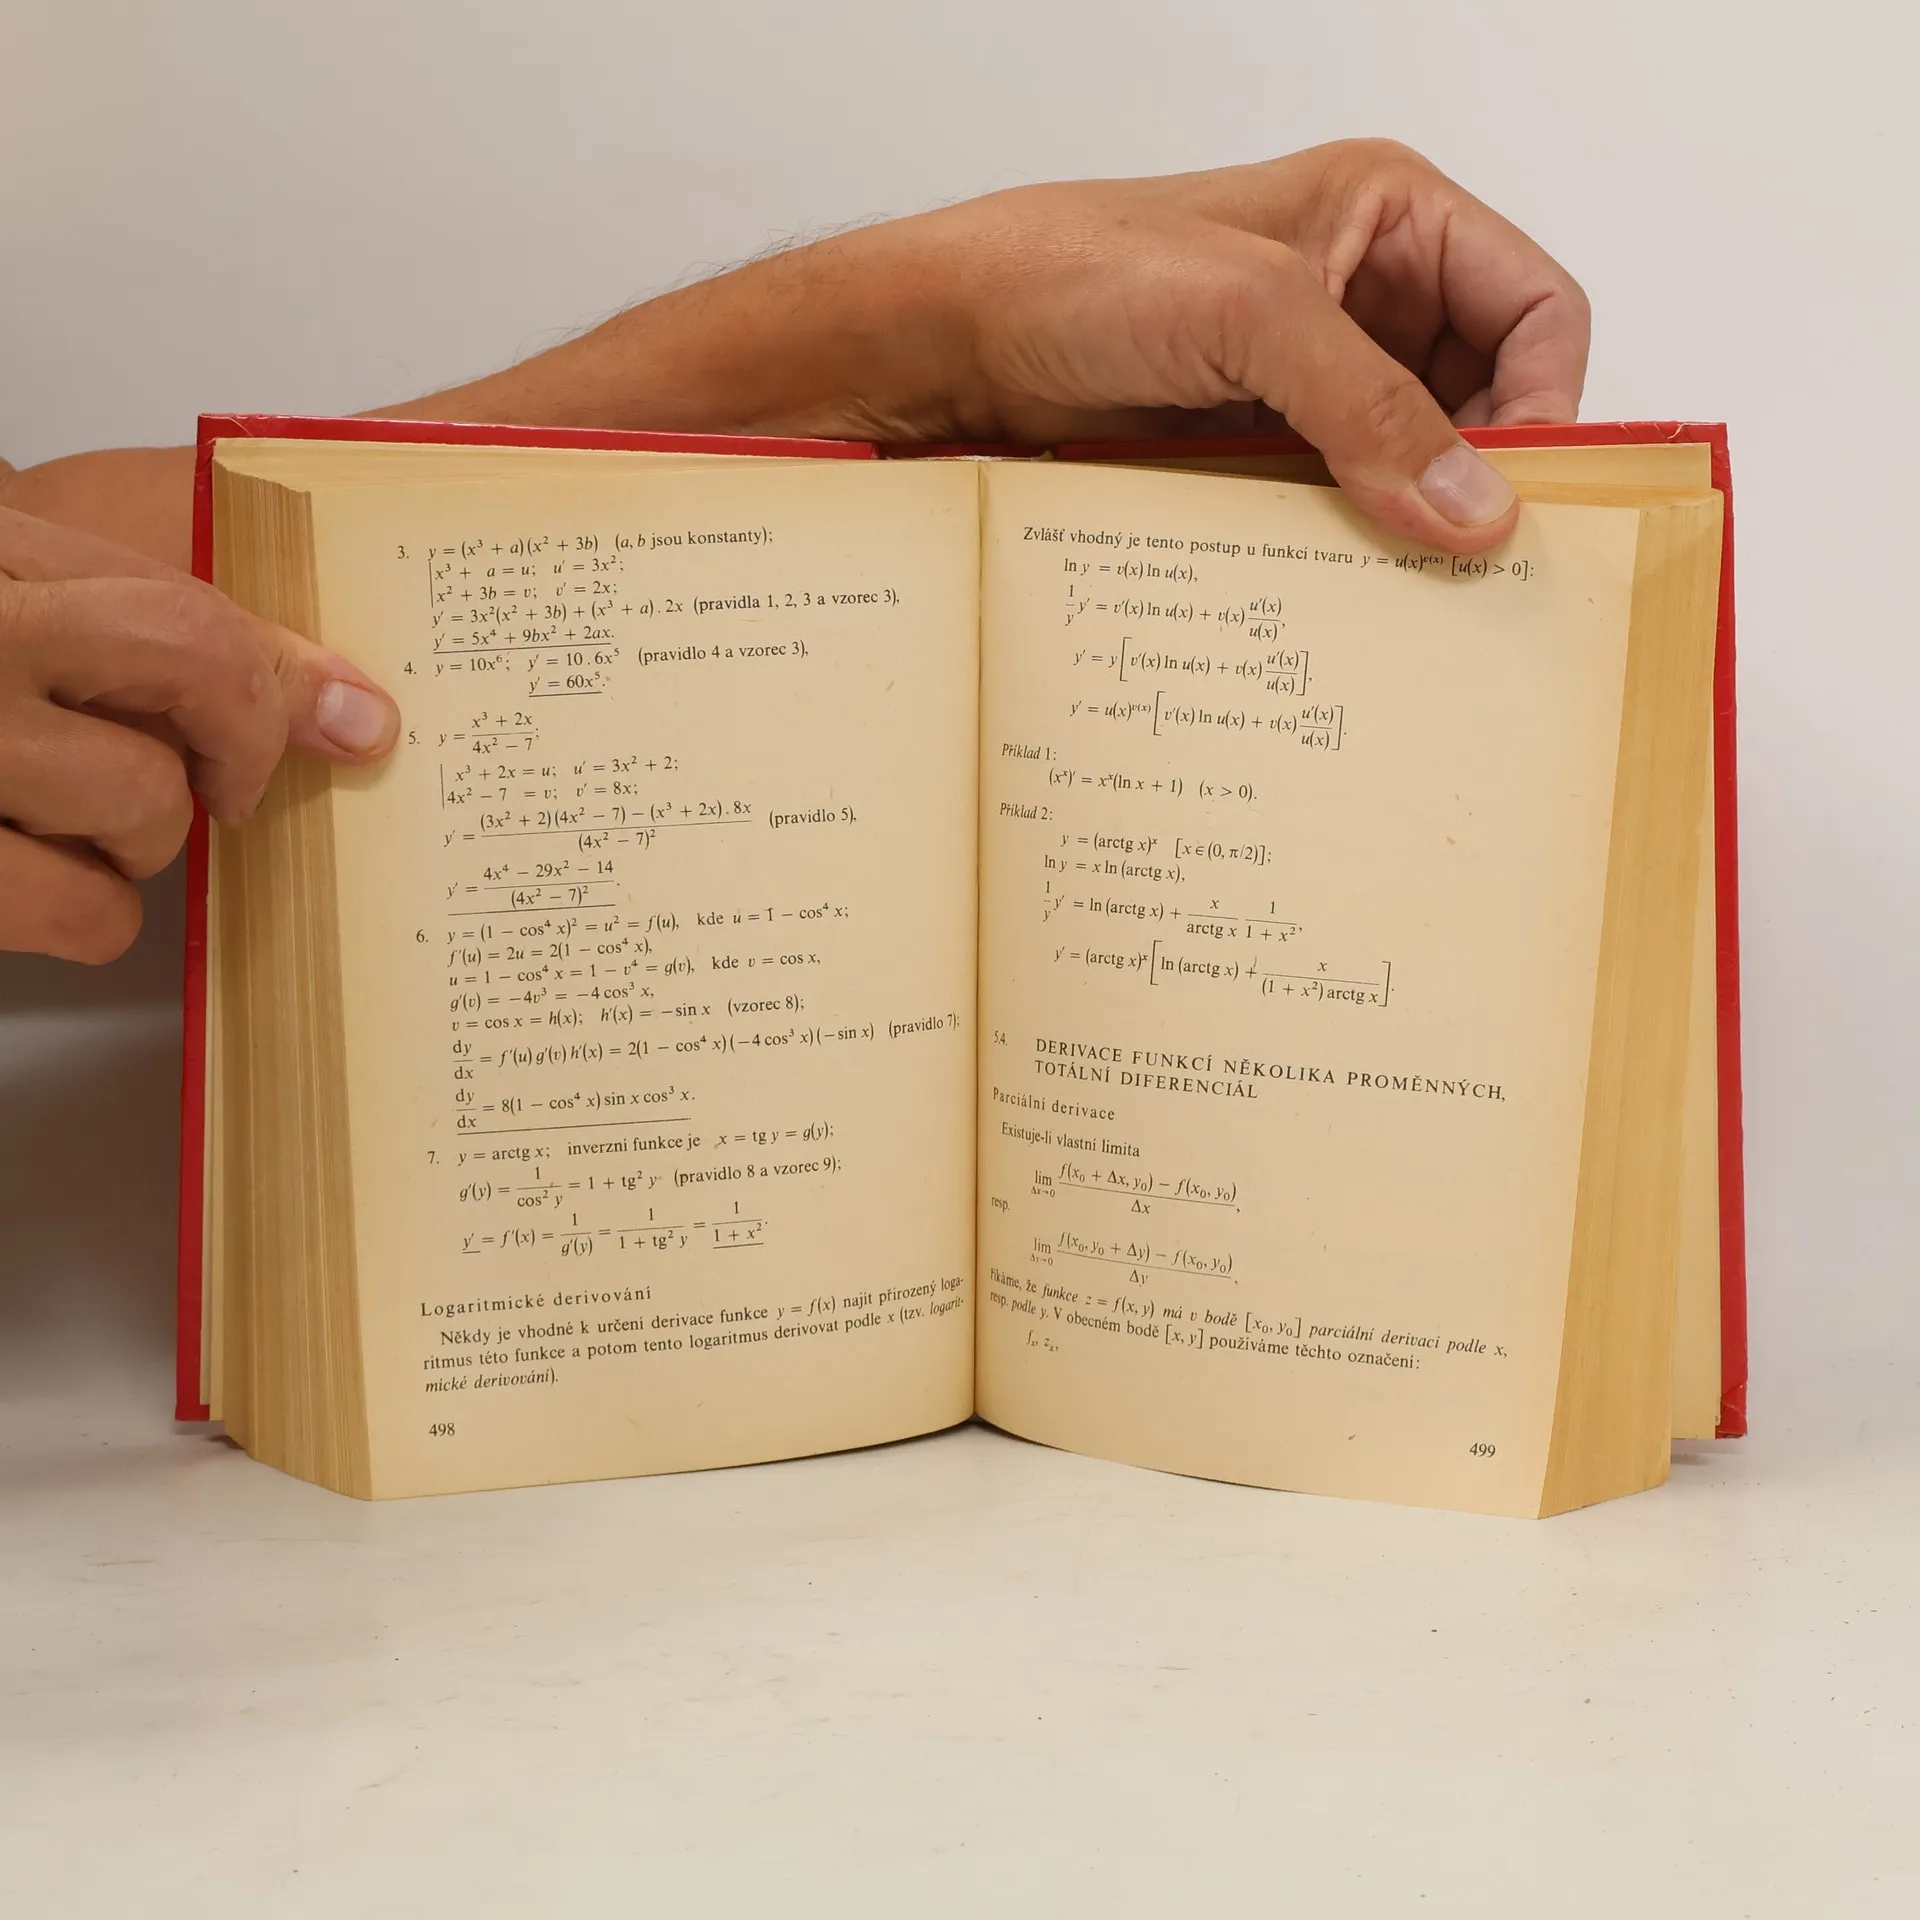 3. y = (x³ + a)(x² + 3b) (a, b jsou konstanty);
x³ + a = u; u′ = 3x²;
x² + 3b = v; v′ = 2x;
y′ = 3x²(x² + 3b) + (x³ + a) . 2x (pravidla 1, 2, 3 a vzorec 3),
y′ = 5x⁴ + 9bx² + 2ax.
4. y = 10x⁶; y′ = 10 . 6x⁵ (pravidlo 4 a vzorec 3),
y′ = 60x⁵.
5. y = (x³ + 2x)/(4x² − 7);
x³ + 2x = u; u′ = 3x² + 2;
4x² − 7 = v; v′ = 8x;
y′ = ((3x² + 2)(4x² − 7) − (x³ + 2x) . 8x)/(4x² − 7)² (pravidlo 5),
y′ = (4x⁴ − 29x² − 14)/(4x² − 7)².
6. y = (1 − cos⁴ x)² = u² = f(u), kde u = 1 − cos⁴ x;
f′(u) = 2u = 2(1 − cos⁴ x),
u = 1 − cos⁴ x = 1 − v⁴ = g(v), kde v = cos x,
g′(v) = −4v³ = −4 cos³ x,
v = cos x = h(x); h′(x) = −sin x (vzorec 8);
dy/dx = f′(u) g′(v) h′(x) = 2(1 − cos⁴ x)(−4 cos³ x)(−sin x) (pravidlo 7);
dy/dx = 8(1 − cos⁴ x) sin x cos³ x.
7. y = arctg x; inverzní funkce je x = tg y = g(y);
g′(y) = 1/cos² y = 1 + tg² y (pravidlo 8 a vzorec 9);
y′ = f′(x) = 1/g′(y) = 1/(1 + tg² y) = 1/(1 + x²).
Logaritmické derivování
Někdy je vhodné k určení derivace funkce y = f(x) najít přirozený loga-
ritmus této funkce a potom tento logaritmus derivovat podle x (tzv. logarit-
mické derivování).
498
Zvlášť vhodný je tento postup u funkcí tvaru y = u(x)^v(x) [u(x) > 0]:
ln y = v(x) ln u(x),
1/y y′ = v′(x) ln u(x) + v(x) u′(x)/u(x),
y′ = y[v′(x) ln u(x) + v(x) u′(x)/u(x)],
y′ = u(x)^v(x) [v′(x) ln u(x) + v(x) u′(x)/u(x)].
Příklad 1:
(xˣ)′ = xˣ(ln x + 1) (x > 0).
Příklad 2:
y = (arctg x)ˣ [x ∈ (0, π/2)];
ln y = x ln (arctg x),
1/y y′ = ln (arctg x) + x/arctg x 1/(1 + x²),
y′ = (arctg x)ˣ [ln (arctg x) + x/((1 + x²) arctg x)].
5.4. DERIVACE FUNKCÍ NĚKOLIKA PROMĚNNÝCH,
TOTÁLNÍ DIFERENCIÁL
Parciální derivace
Existuje-li vlastní limita
lim Δx→0 (f(x₀ + Δx, y₀) − f(x₀, y₀))/Δx,
resp.
lim Δy→0 (f(x₀, y₀ + Δy) − f(x₀, y₀))/Δy,
říkáme, že funkce z = f(x, y) má v bodě [x₀, y₀] parciální derivaci podle x,
resp. podle y. V obecném bodě [x, y] používáme těchto označení:
fₓ, zₓ,
499